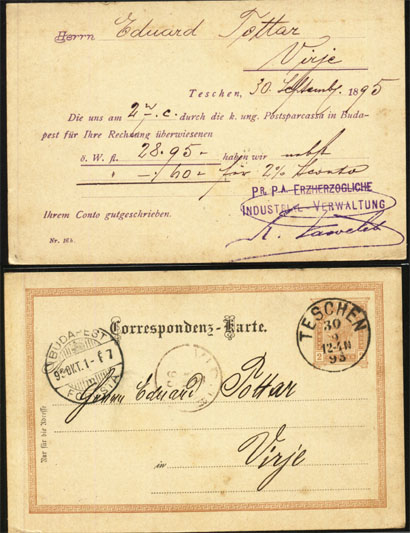 Herrn Eduard Pottar
Virje
Teschen, 30 Septemb. 1895
Die uns am 2 w. c. durch die k. ung. Postsparcassa in Buda-
pest für Ihre Rechnung überwiesenen
ö. W. fl. 28.95 - haben wir nebst
" -.60 - für 2% Sconto
PR. P.A. ERZHERZOGLICHE
INDUSTRIAL-VERWALTUNG
Ihrem Conto gutgeschrieben.
Nr. 16 b.
Correspondenz-Karte.
TESCHEN
30
9
12-1 N
95
2
BUDAPEST
95 OKT. 1 - F 7
Nur für die Adresse
Herrn Eduard Pottar
in Virje